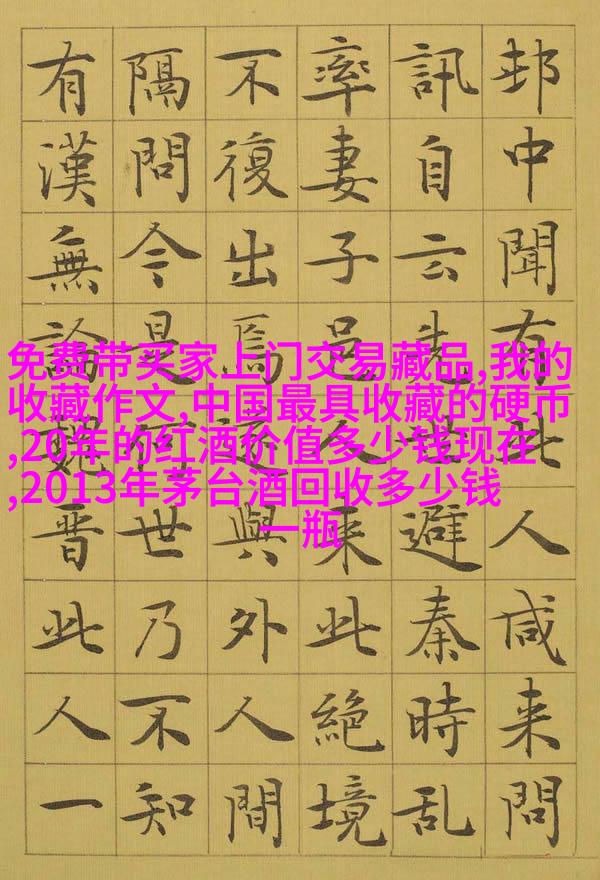 邨中聞有此人咸来問
訊自云先世避秦時乱
率妻子邑人来此絶境
不復出焉遂與外人間
隔問今是何世乃不知
有漢無論魏晋此人一
免费带买家上门交易藏品,我的
收藏作文,中国最具收藏的硬币
,20年的红酒价值多少钱现在
,2013年茅台酒回收多少钱
一瓶